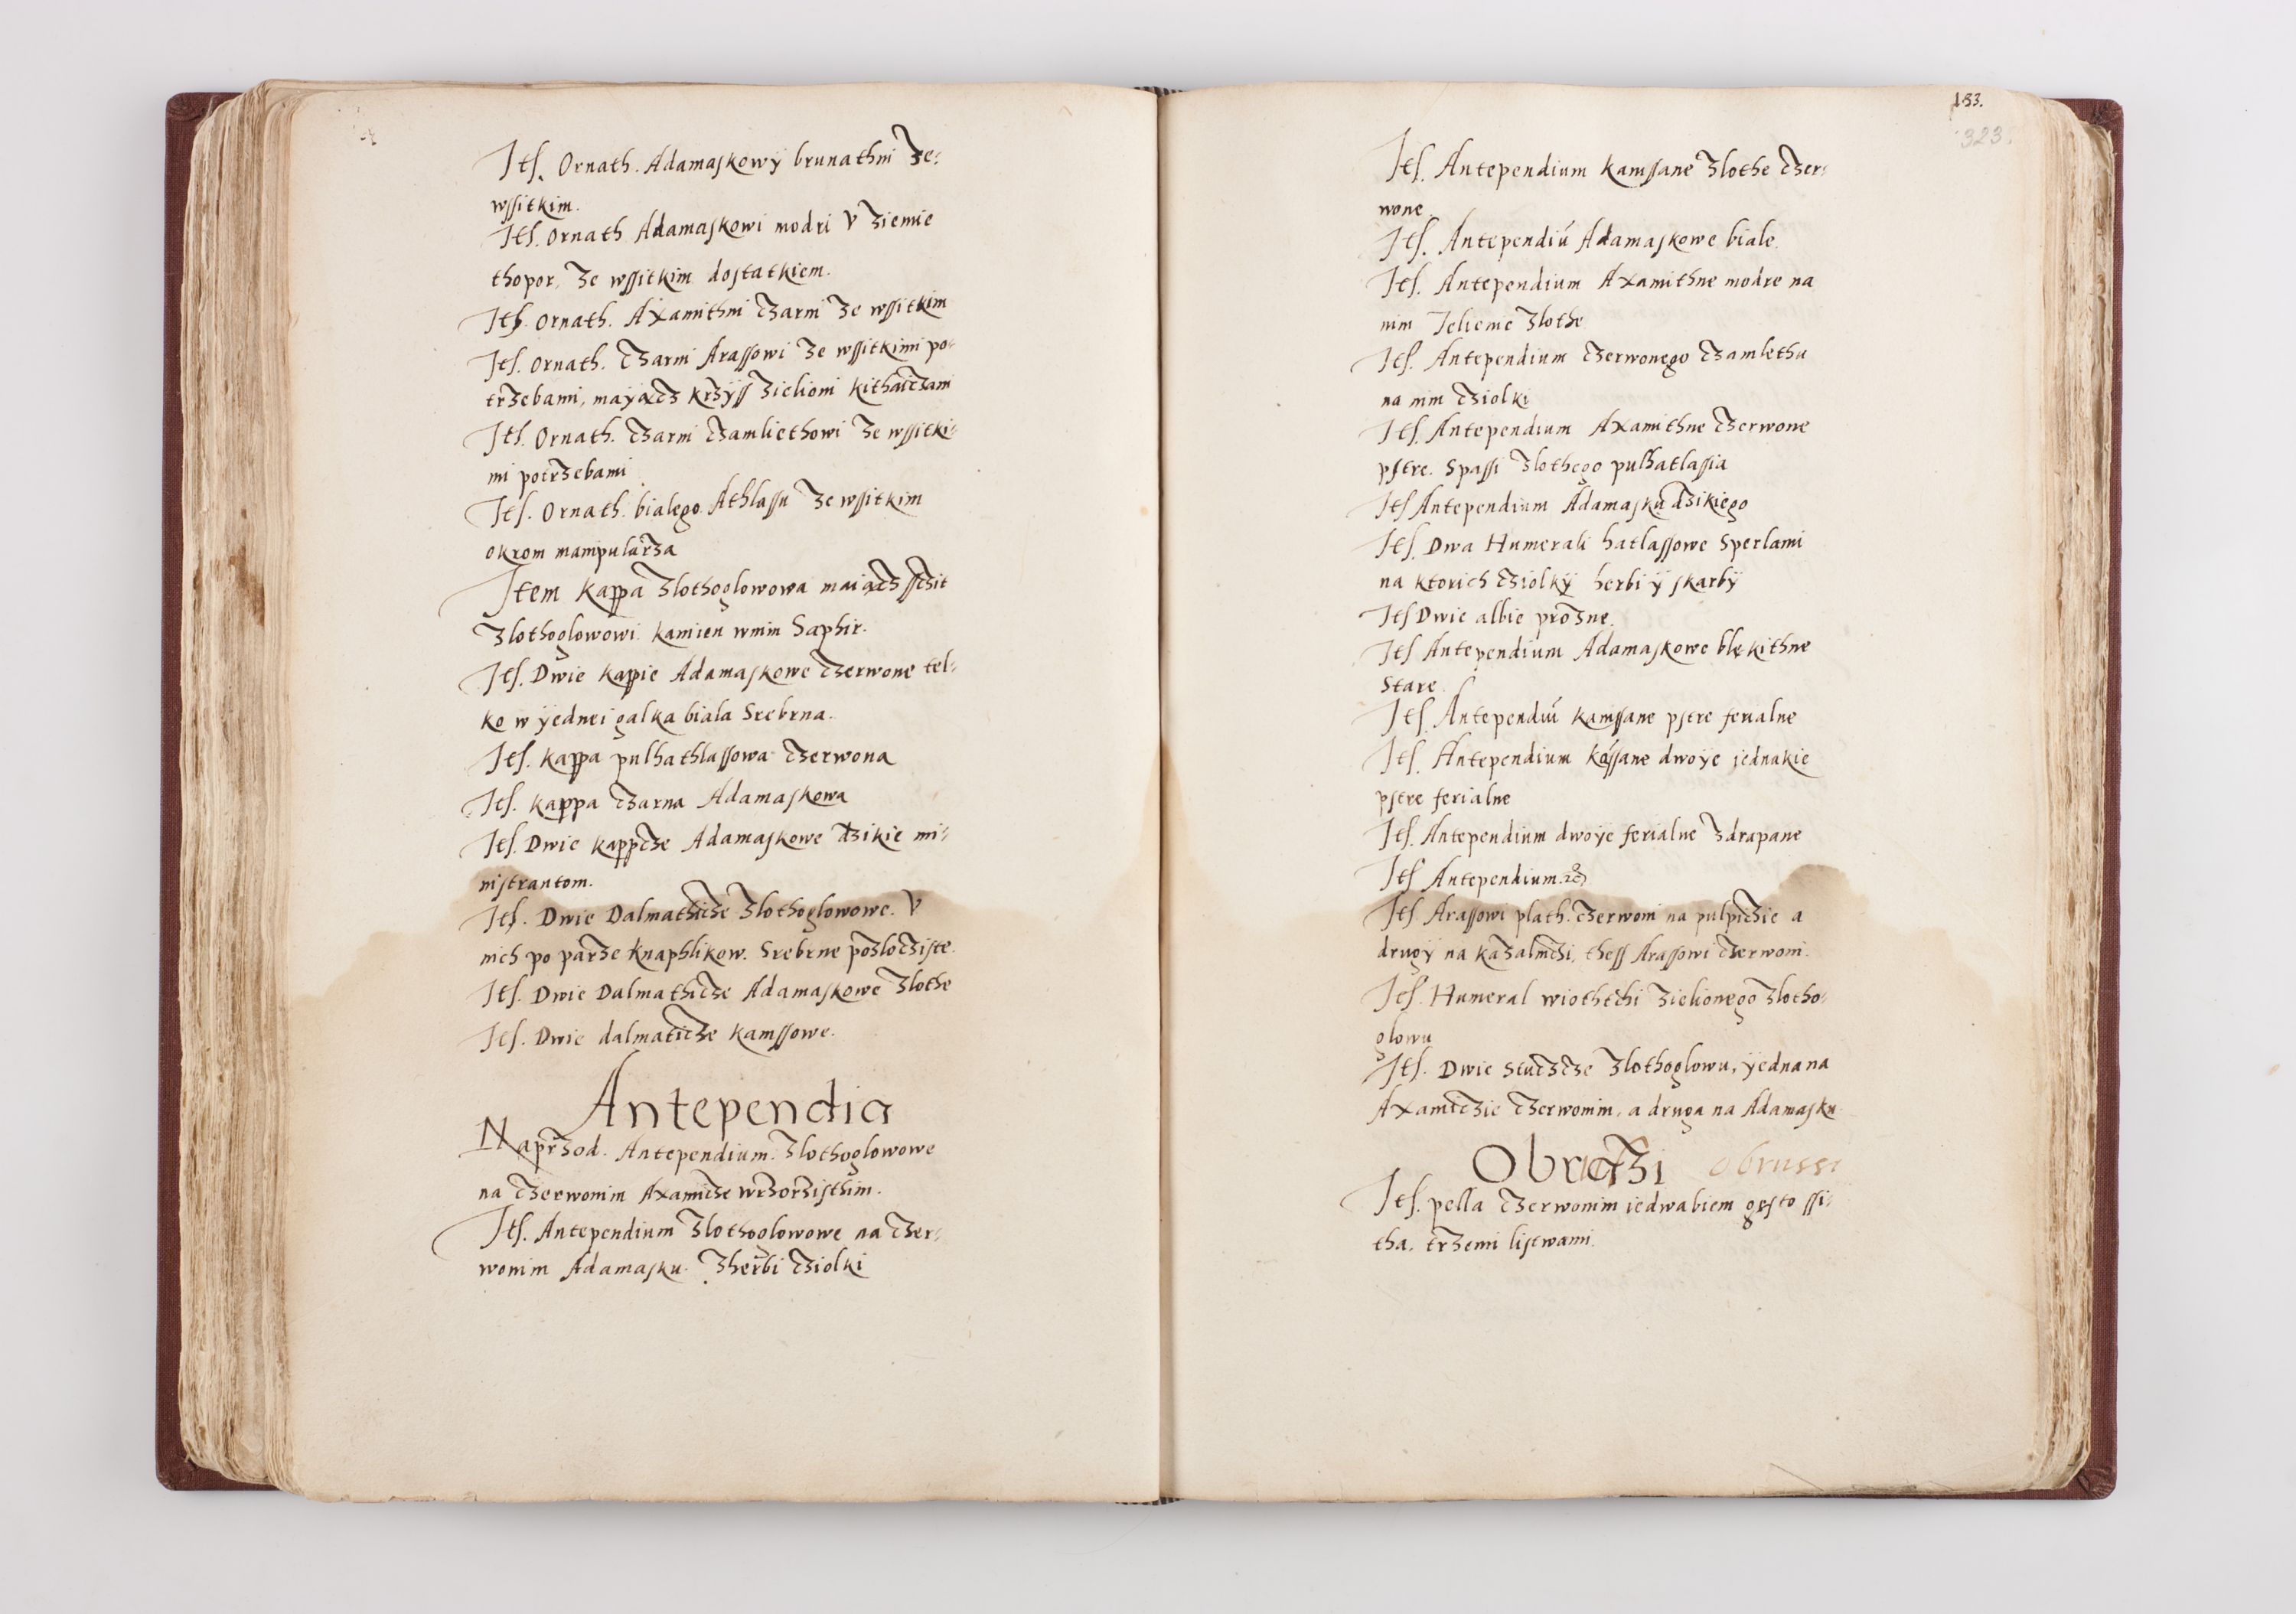 Its. Ornath. Adamaskowÿ brunathni ze-
wssitkim.
Its. Ornath Adamaskowi modri v ziemie
thopor, ze wssitkim dostatkiem.
Its. Ornath. Axamithni czarni ze wssitkim
Its. Ornath. czarni Arassowi ze wssitkimi po-
trzebami, mayącz krzÿss zielioni kithaiczani
Its. Ornath. czarni czamliethowi ze wssitki-
mi potrzebami
Its. Ornath. bialego Athlassu ze wssitkim
okrom manipularza
Item kappa zlothoglowowa maiącz sczit
zlothoglowowi. kamien wnim Saphir.
Its. Dwie kappie Adamaskowe czerwone tel-
ko w ÿednei galka biala Srebrna.
Its. kappa pulhathlassowa czerwona
Its. kappa czarna Adamaskowa
Its. Dwie kappcze Adamaskowe dzikie mi-
nistrantom.
Its. Dwie Dalmathicze zlothoglowowe. V
nich po parze knaphlikow. Srebrne pozlocziste.
Its. Dwie Dalmathicze Adamaskowe zlothe
Its. Dwie dalmaticze kamssowe.
Antependia
Naprzod. Antependium. zlothoglowowe
na czerwonim Axamicze wrzorzisthim.
Its. Antependium zlothoglowowe na czer-
wonim Adamasku. zherbi cziolki
133.
323.
Its. Antependium kamssane zlothe czer-
wone
Its. Antependiu Adamaskowe biale.
Its. Antependium Axamithne modre na
nim Jelienie zlothe
Its. Antependium czerwonego czamlethu
na nim cziolki
Its. Antependium Axamithne czerwone
pstre. Spassi zlothego pulhatlassia
Its Antependium Adamasku dzikiego
Its. Dwa Humerali hatlassowe Sperlami
na ktorich cziolkÿ herbi ÿ skarbÿ
Its Dwie albie prozne.
Its Antependium Adamaskowe blękithne
Stare.
Its. Antependiu kamssane pstre ferialne
Its. Antependium kassane dwoÿe jednakie
pstre ferialne
Its. Antependium dwoÿe ferialne zdrapane
Its Antependium.
Its Arassowi plath. czerwoni na pulpiczie a
drugÿ na kazalniczi, thess Arassowi czerwoni.
Its. Humeral wioththchi zielionego zlotho-
glowu
Its. Dwie Stuczcze zlothoglowu, ÿedna na
Axamiczie czerwonim, a druga na Adamasku
Obruczi obrussi
Its. pella czerwonim iedwabiem gęsto ssi-
tha. trzemi listwami.